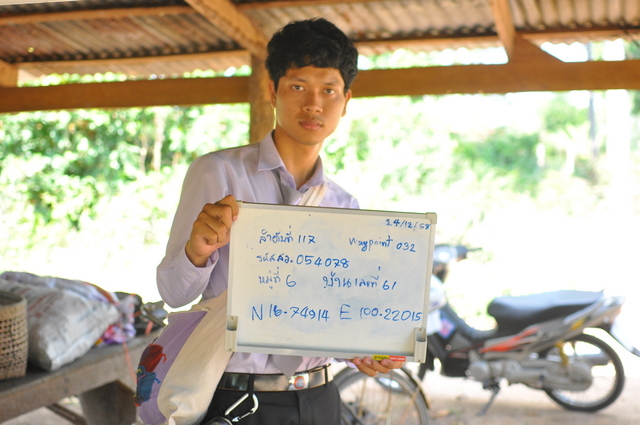 24/12/58
ลำดับที่ 117 waypoint 032
รหัสสว. 054078
หมู่ที่ 6 บ้านเลขที่ 61
N 16.74914 E 100.22015